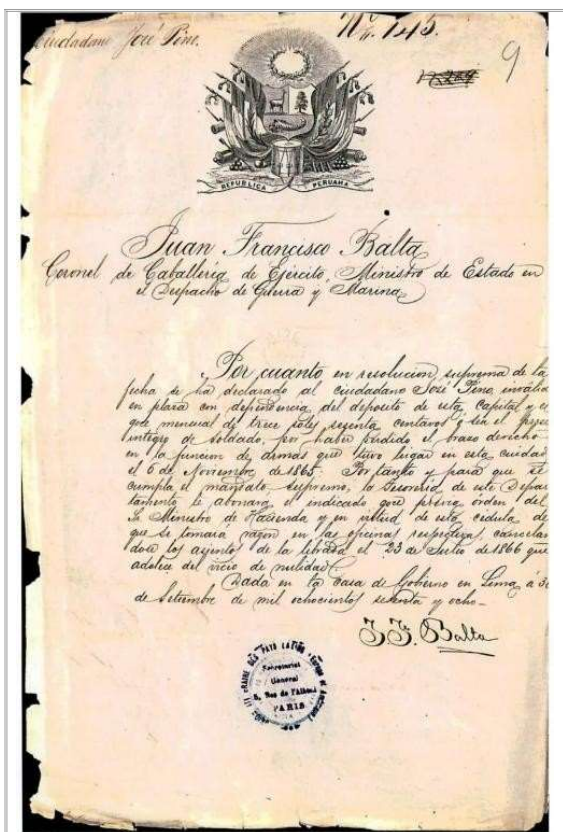 Ciudadano José Pino.
Nº 145.
9
REPUBLICA PERUANA
Juan Francisco Balta
Coronel de Caballería de Ejército, Ministro de Estado en
el Despacho de Guerra y Marina
Por cuanto en resolucion suprema de la
fecha se ha declarado al ciudadano José Pino, invalido
en plaza con dependencia del deposito de esta Capital y el
goce mensual de trece soles sesenta centavos ó sea el
integro de soldado, por haber perdido el brazo derecho
en la funcion de armas que tuvo lugar en esta ciudad
el 6 de Noviembre de 1865. Por tanto y para que se
cumpla el mandato supremo, la Tesoreria de este Depar
tamento le abonará el indicado goce prévia órden del
Sr Ministro de Hacienda y en virtud de esta cédula de
que se tomará razon en las oficinas respectivas, cancelan
dose los asientos de la librada el 23 de Julio de 1866 que
adolece del vicio de nulidad.
Dada en la Casa de Gobierno en Lima, á 30
de Setiembre de mil ochocientos sesenta y ocho.
J. F. Balta
Secretariat
General
PARIS